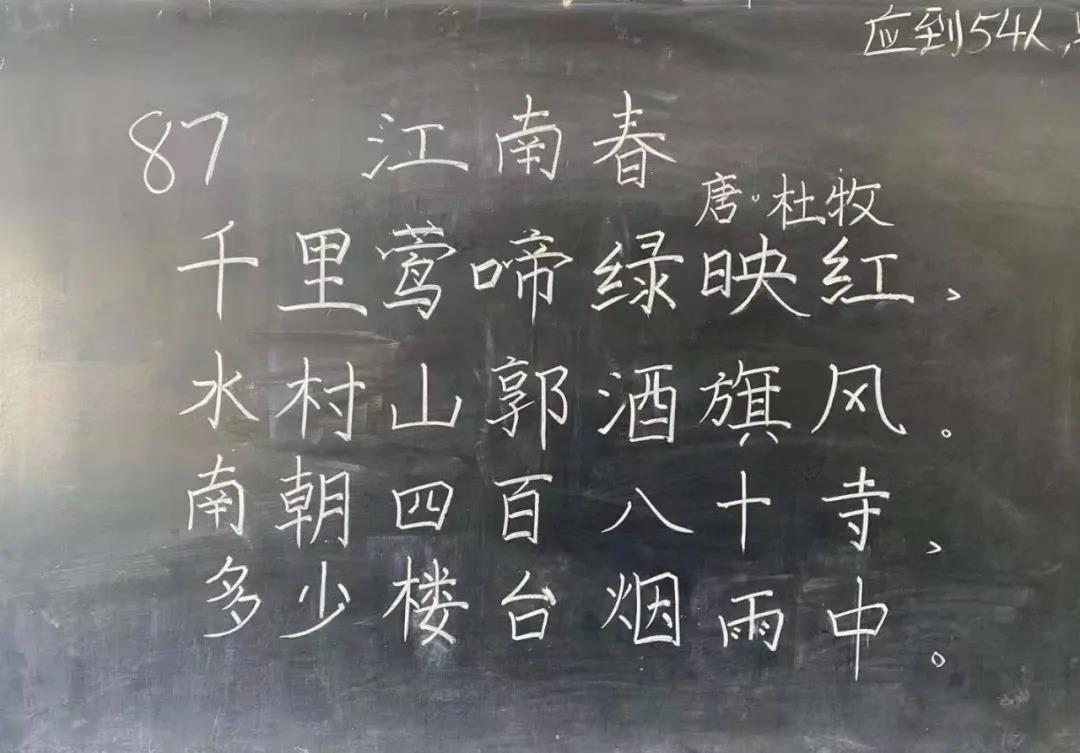 应到54人,
87 江南春
唐·杜牧
千里莺啼绿映红、
水村山郭酒旗风。
南朝四百八十寺、
多少楼台烟雨中。